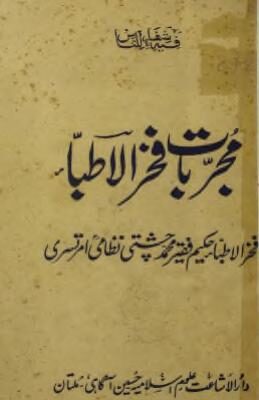 فیہ شفاء للناس
مجربات فخر الاطباء
فخر الاطباء حکیم فقیر محمد چشتی نظامی امرتسری
دار الاشاعت علوم اسلامیہ حسین آگاہی۔ ملتان